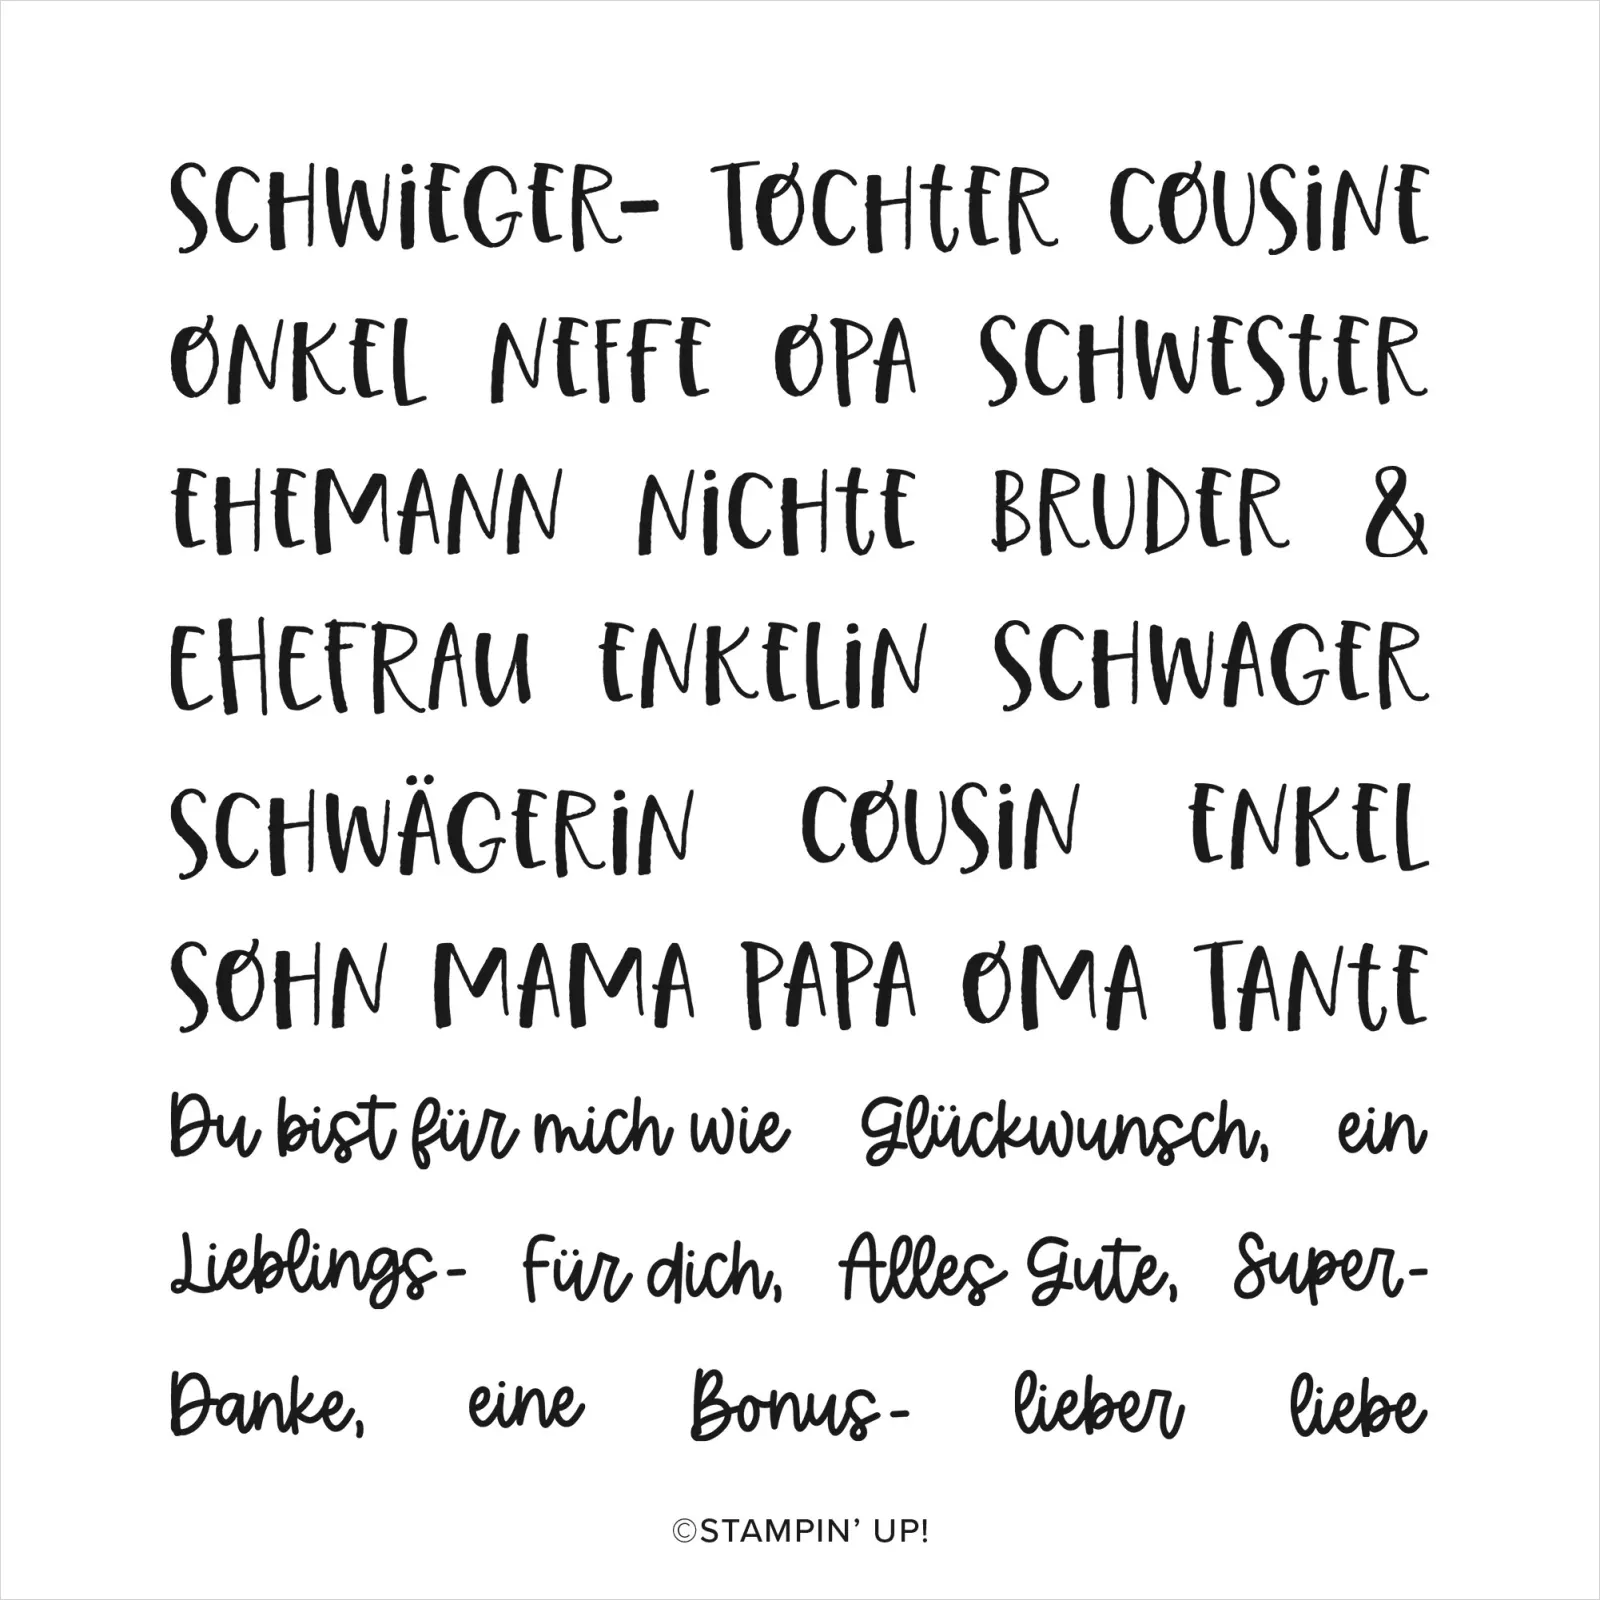 SCHWiEGER- TOCHtER COUSiNE
ONKEL NEFFE OPA SCHWEStER
EHEMANN NiCHtE BRUDER &
EHEFRAU ENKELiN SCHWAGER
SCHWÄGERiN COUSiN ENKEL
SOHN MAMA PAPA OMA TANtE
Du bist für mich wie Glückwunsch, ein
Lieblings- Für dich, Alles Gute, Super-
Danke, eine Bonus- lieber liebe
©STAMPIN’ UP!